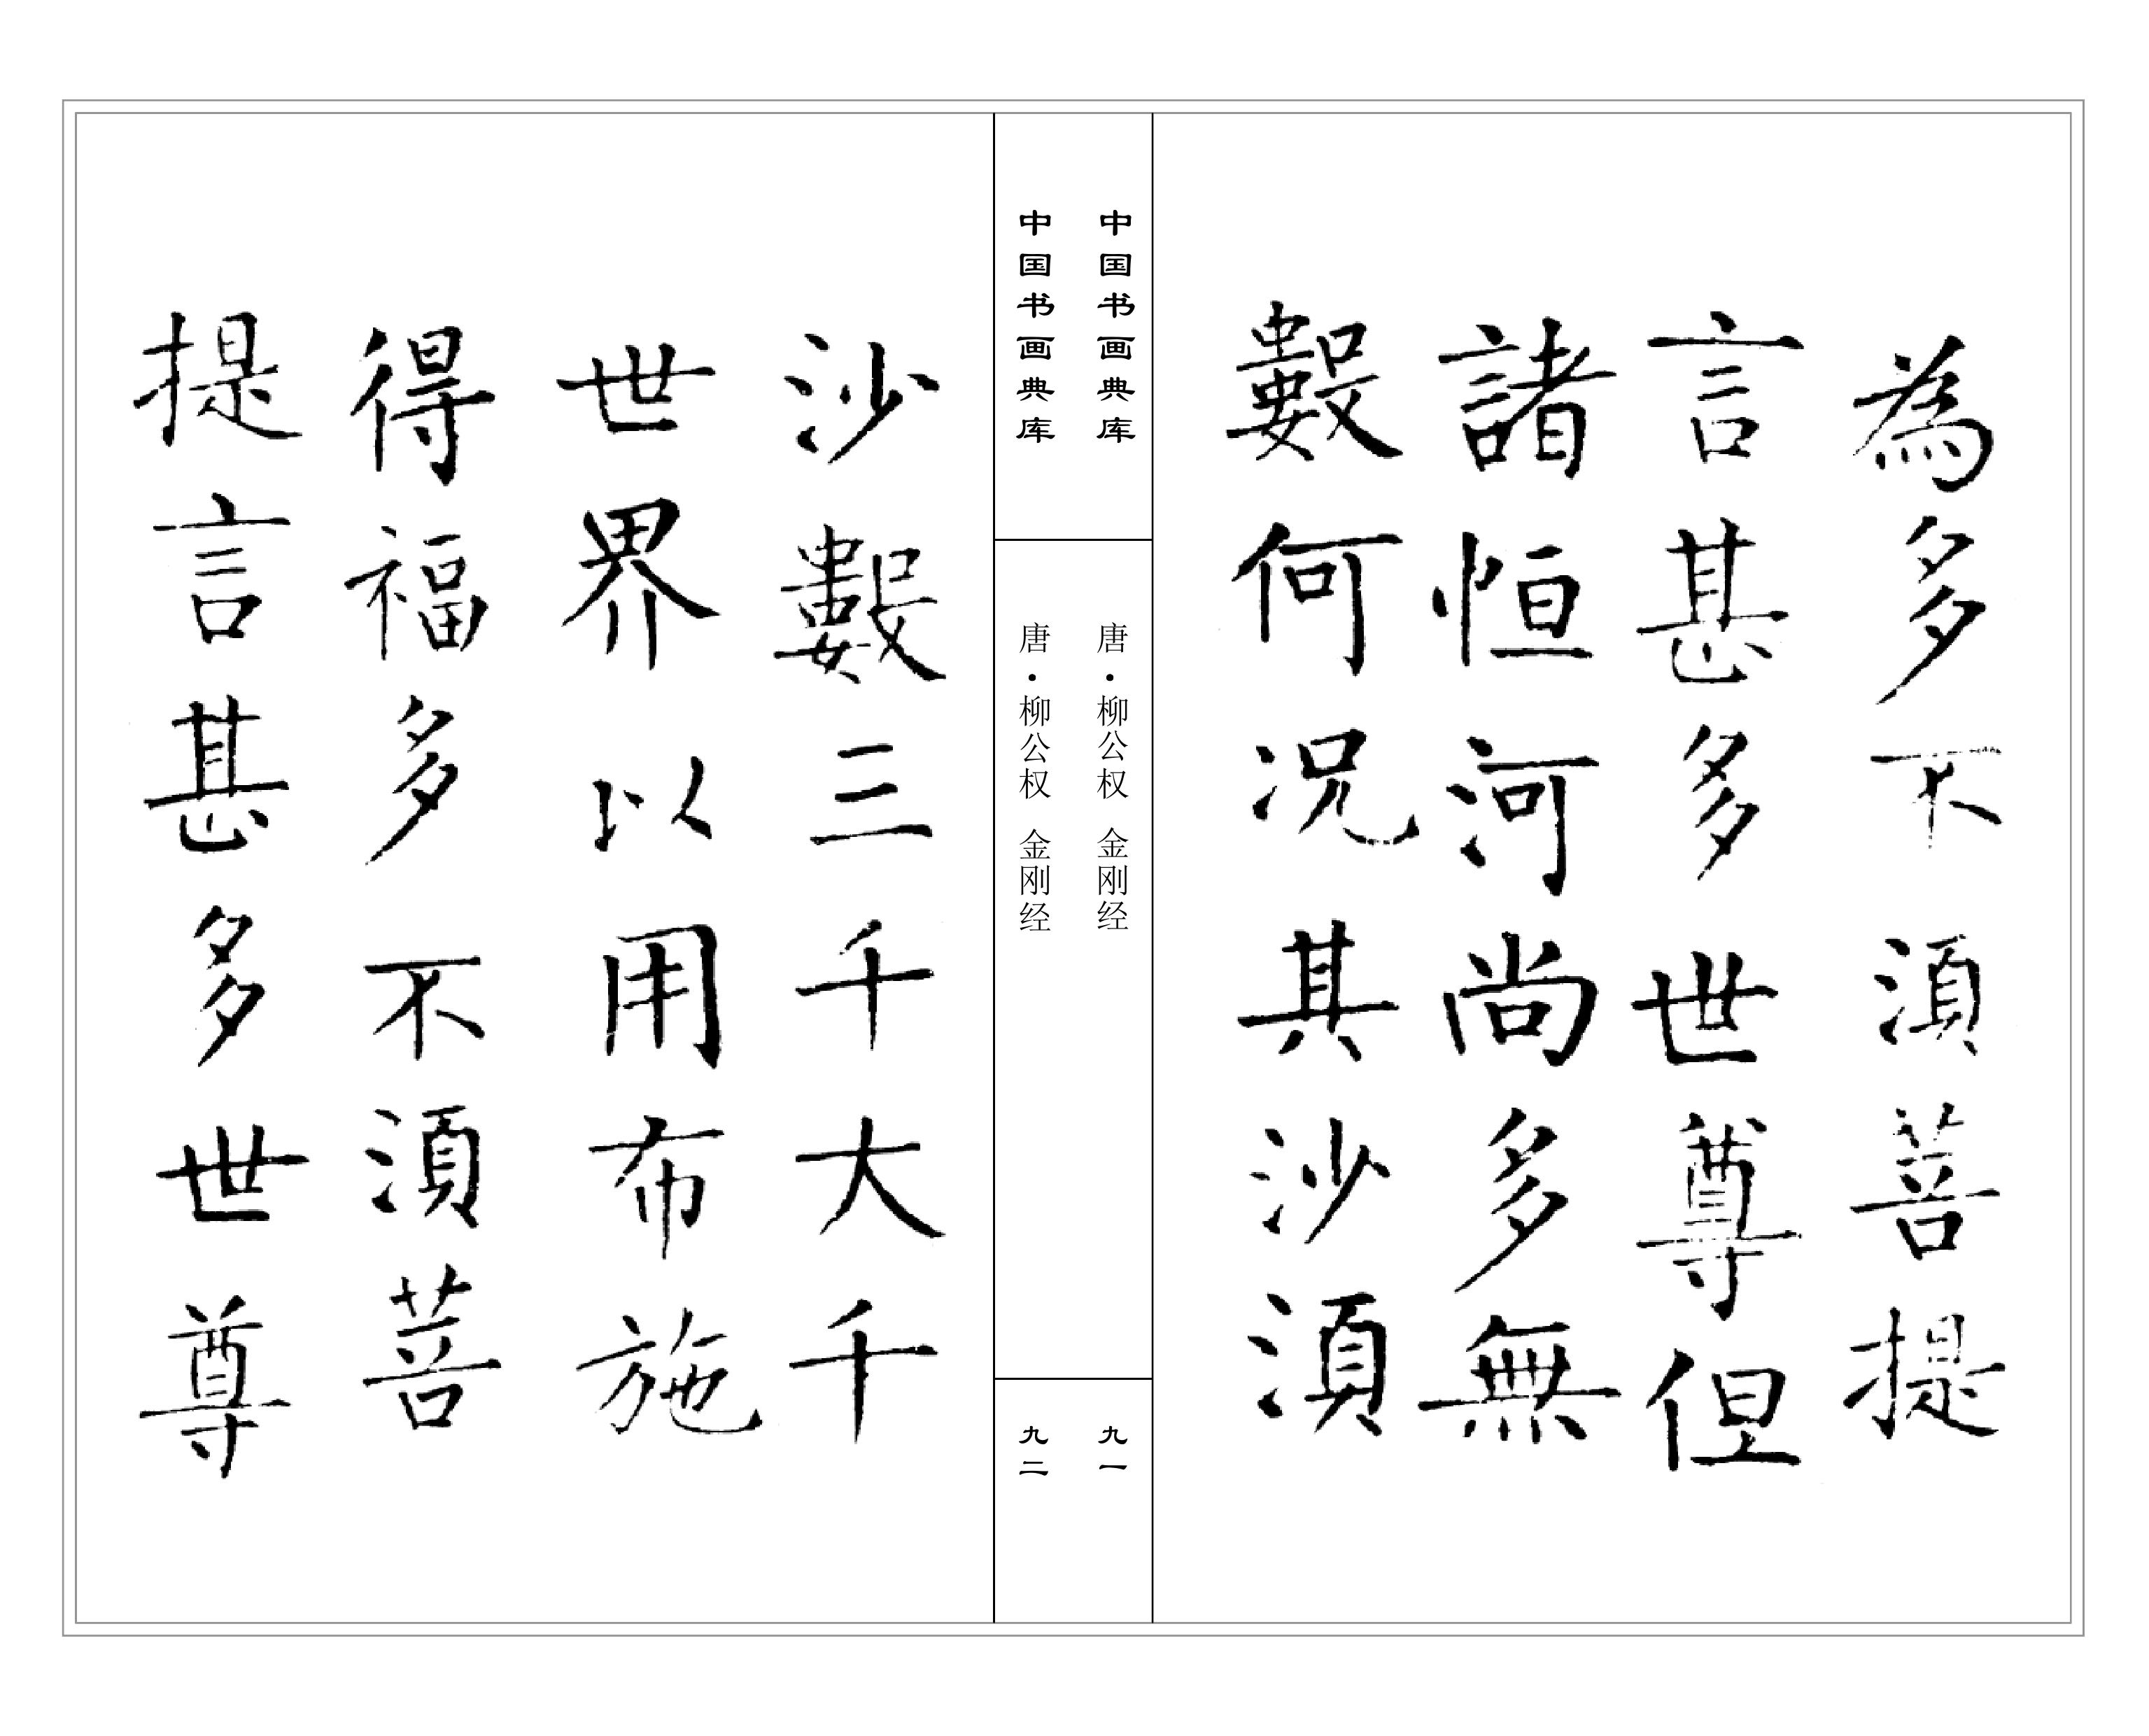 為多不湏菩提
言甚多世尊但
諸恒河尚多無
數何况其沙湏
中国书画典库
唐·柳公权 金刚经
九一
中国书画典库
唐·柳公权 金刚经
九二
沙數三千大千
世界以用布施
得福多不湏菩
提言甚多世尊